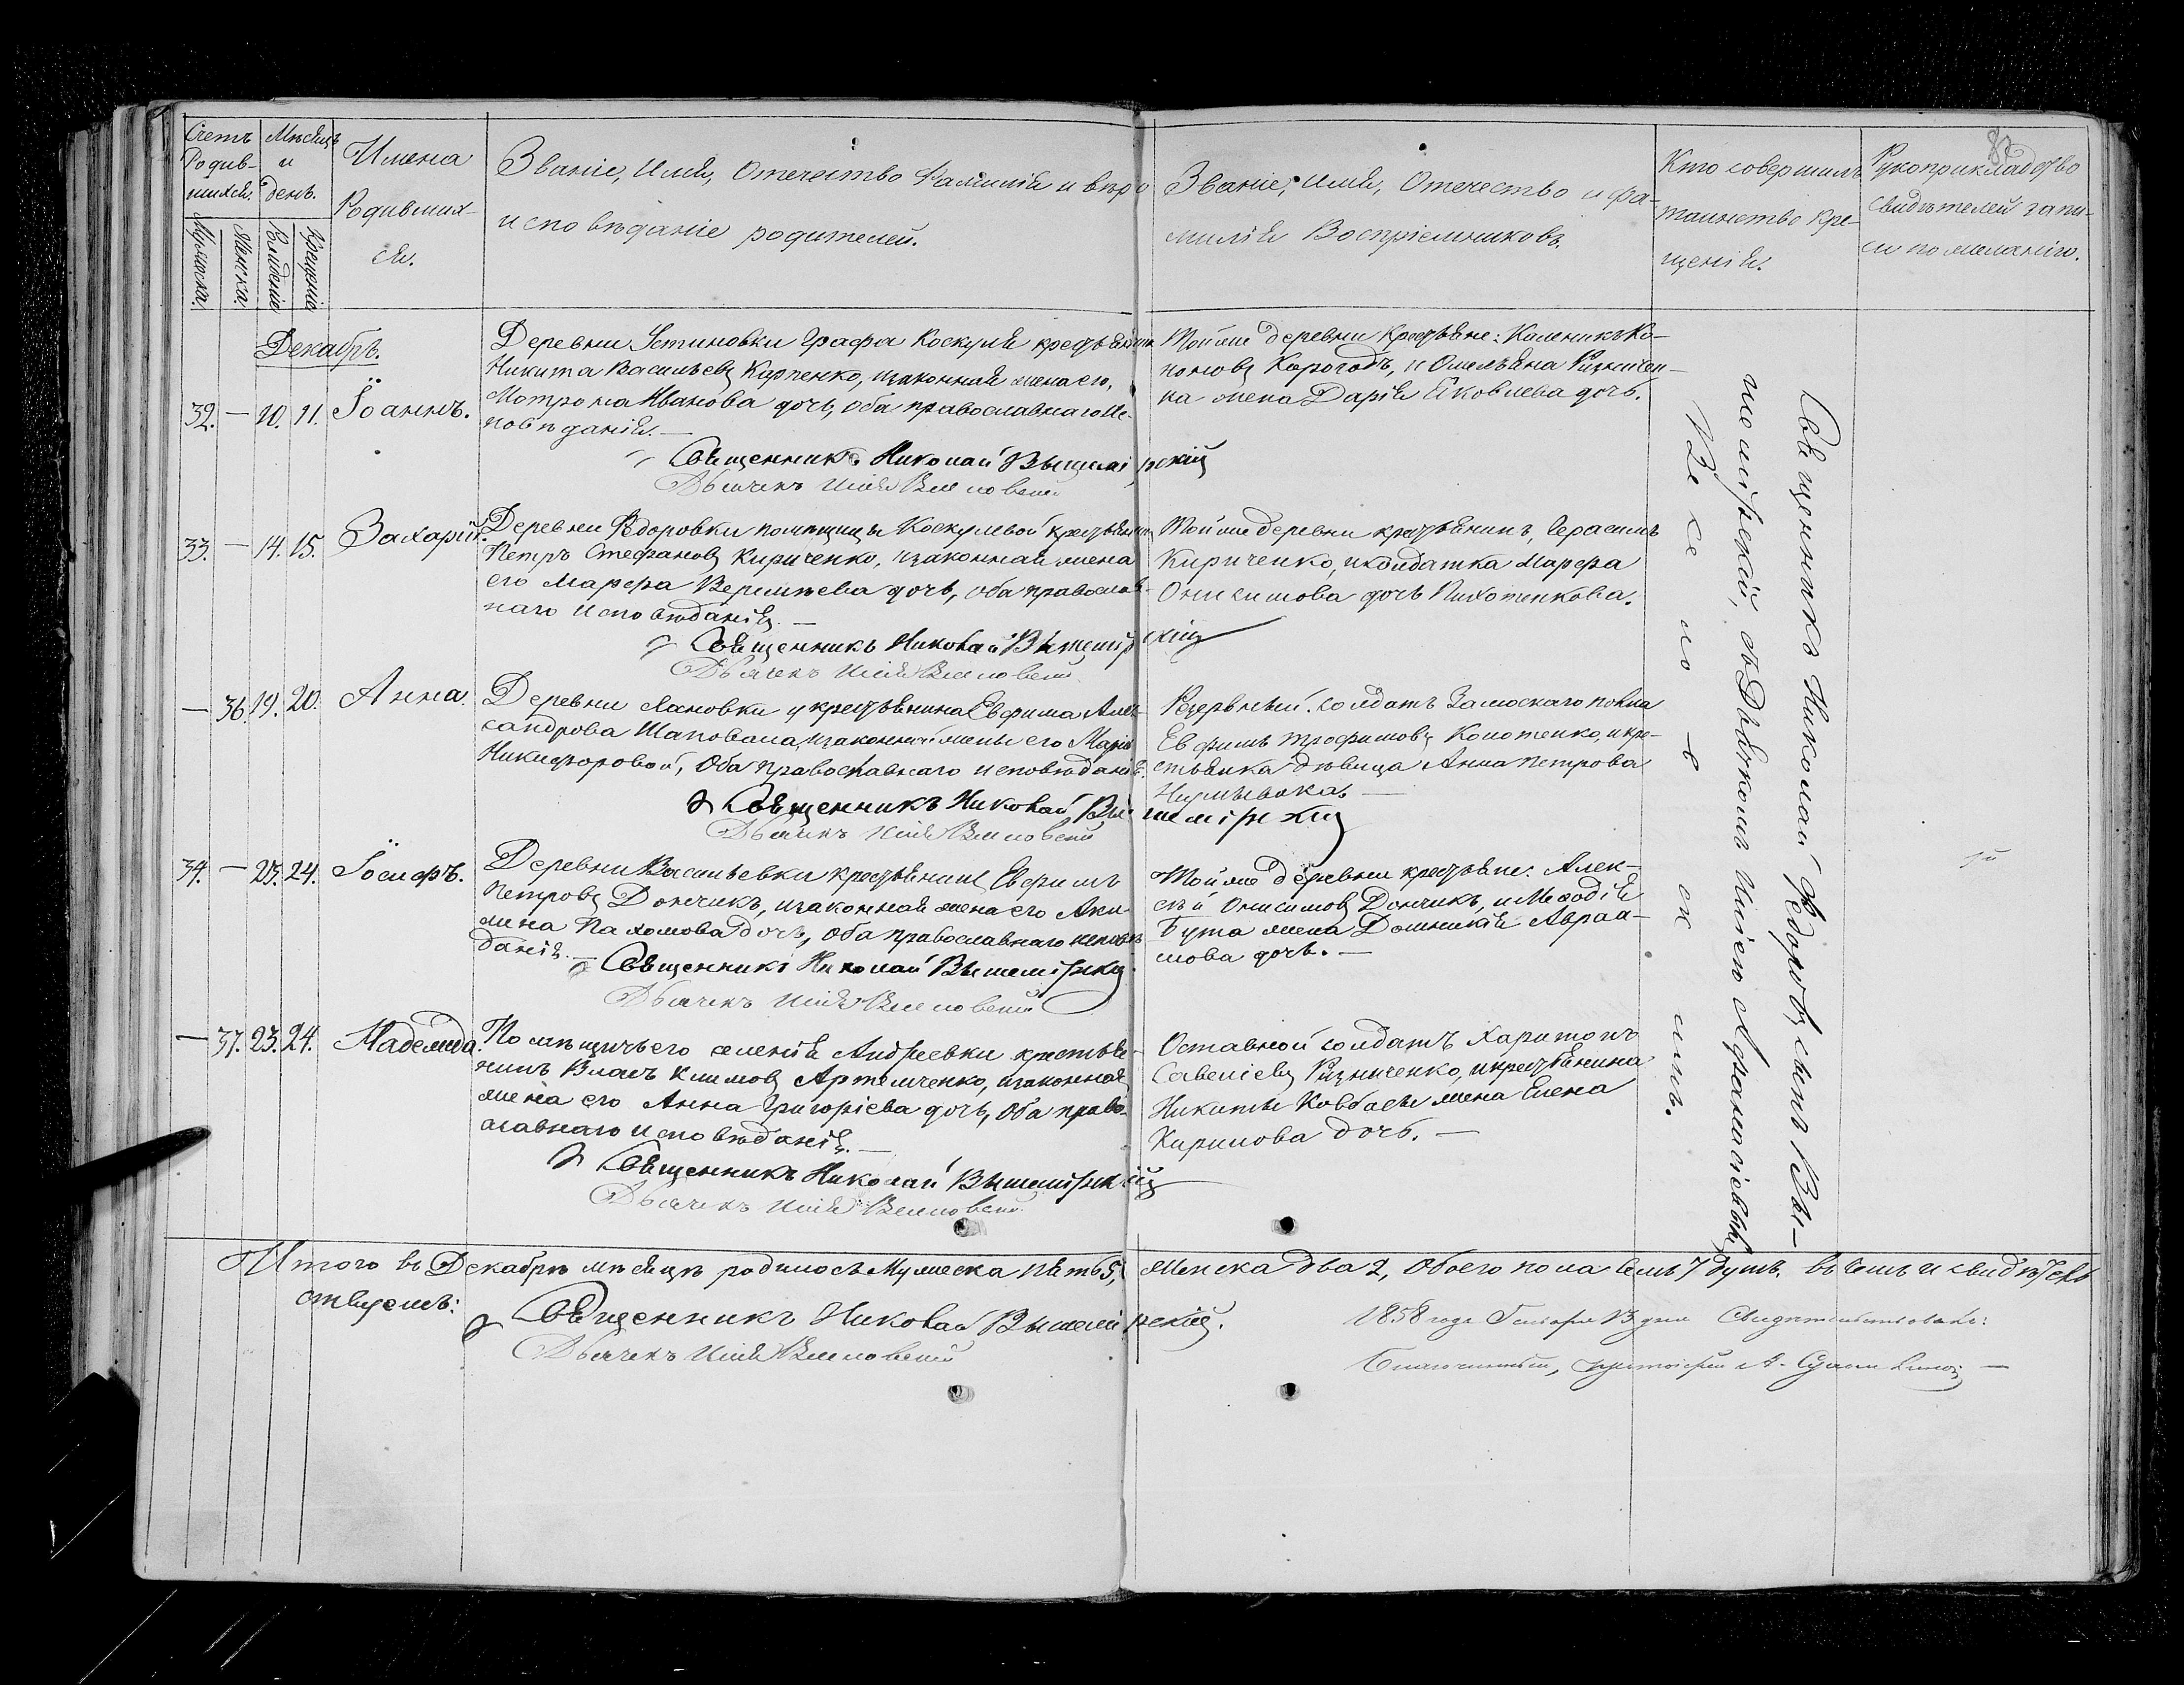 Счетъ
Родив-
шихся.
Мужеска.
Женска.
Мѣсяцъ
и
день.
Рожденіе
Крещеніе
Имена
Родивших-
ся.
Званіе, Имя, Отечество Фамилія и вѣро
исповѣданіе родителей.
Званіе, имя, Отечество и фа-
милія Воспріемниковъ.
Кто совершилъ
таинство кре-
щенія.
Рукоприкладство
свидѣтелей запи-
си по желанію.
Декабрь.
32. — 10. 11. Іоаннъ.
Деревни Устиновки Графа Коскуля крестьянинъ
Никита Васильевъ Карпенко, изаконная жена его,
Мотрона Иванова дочь, оба православнаго ис-
повѣданія. —
Священникъ Николай Вышемірскій
Дьячекъ Илія
Тойже деревни крестьяне: Каленикъ Ко-
новъ Карогодъ, и Омельяна Ризничен-
ка жена Дарія Яковлева дочь.
33. — 14. 15. Захарій.
Деревни Ѳедоровки помѣщицы Коскулевой крестьянинъ
Петръ Стефановъ Кириченко, изаконная жена
его Марфа дочь, оба православ-
наго исповѣданія. —
Священникъ Николай Вышемірскій
Дьячекъ Илія
Тойже деревни крестьянинъ, Герасимъ
Кириченко, исолдатка Марфа
Онисимова дочь Пихотенкова.
— 36. 19. 20. Анна.
Деревни Лановки у крестьянина Евфима Алек-
сандрова Шаповала, изаконной жены его Маріи
Никифоровой, Оба православнаго исповѣданія.
Священникъ Николай Вышемірскій
Дьячекъ Илія
Резервный солдатъ Замоскаго полка
Евфимъ Трофимовъ Конотенко, и кре-
стьянка дѣвица Анна Петрова
34. — 23. 24. Іосифъ.
Деревни Васильевки крестьянинъ Евфимъ
Петровъ Дончикъ, изаконная жена его Аки-
лина Пахомова дочь, оба православнаго исповѣ
данія. —
Священникъ Николай Вышемірскій
Дьячекъ Илія
Тойже деревни крестьяне: Алек-
сѣй Онисимовъ Дончикъ, и Меѳодія
Бута жена Домникія Авраа-
мова дочь. —
— 37. 23. 24. Надежда.
Помѣщичьего селенія Андреевки крестья-
нинъ Власъ Климовъ Артемченко, изаконная
жена его Анна Григоріева дочь, Оба право-
славнаго исповѣданія. —
Священникъ Николай Вышемірскій
Дьячекъ Илія
Отставной солдатъ Харитонъ
Савеліевъ Ризниченко, и крестьянина
Никиты Ковбасы жена Елена
Кирилова дочь. —
Священникъ Николай Ѳедоровъ сынъ Вы-
шемірскій, съ Дьячкомъ Иліею Афанасіевымъ
Итого въ Декабрѣ мѣсяцѣ родилось Мужеска пять 5,
Женска два 2, Обоего пола семь 7 душъ. въ чемъ и свидѣтель
ствуемъ:
Священникъ Николай Вышемірскій.
Дьячекъ Илія
1858 года Генваря 13 дня Свидѣтельствовалъ:
Благочинный,